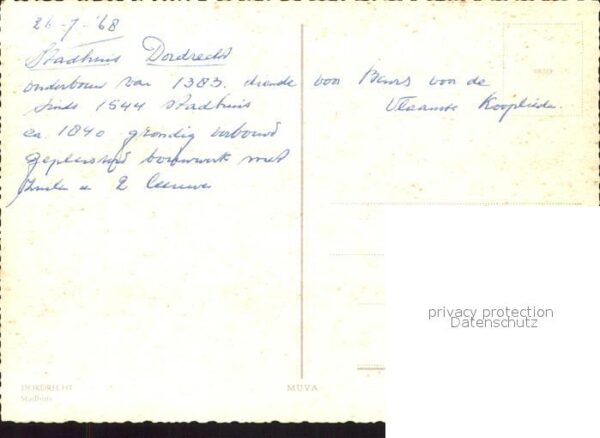 26-7-'68
Stadhuis Dordrecht
onderbouw van 1383. diende voor Beurs van de
sinds 1544 stadhuis Vlaamse Kooplieden.
ca. 1840 grondig verbouwd
gepleisterd bouwwerk met
zuilen en 2 leeuwen
privacy protection
Datenschutz
DORDRECHT
Stadhuis
MUVA